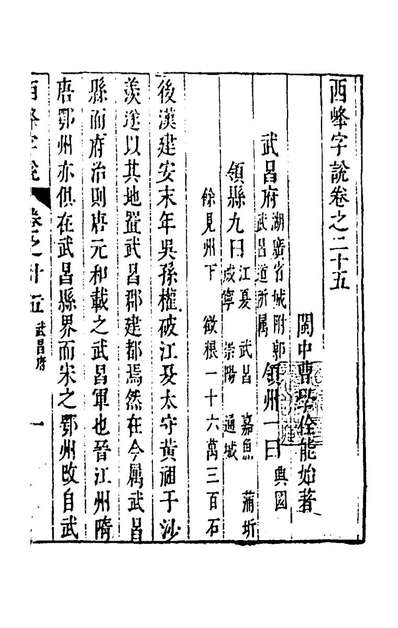 西峰字說卷之二十五
閩中曹學佺能始著
武昌府湖廣省城附郭武昌道所屬領州一曰興國
領縣九曰江夏 嘉魚 蒲圻咸寧 崇陽 通城
餘見州下 欲根一十六萬三百石
後漢建安末年吳孫權破江夏太守黃祖于沙
羨遂以其地置武昌郡建都焉然在今屬武昌
縣而府治則唐元和載之武昌軍也晉江州隋
唐鄂州亦俱在武昌縣界而宋之鄂州改自武
西峰字說 卷之廿五 武昌府 一